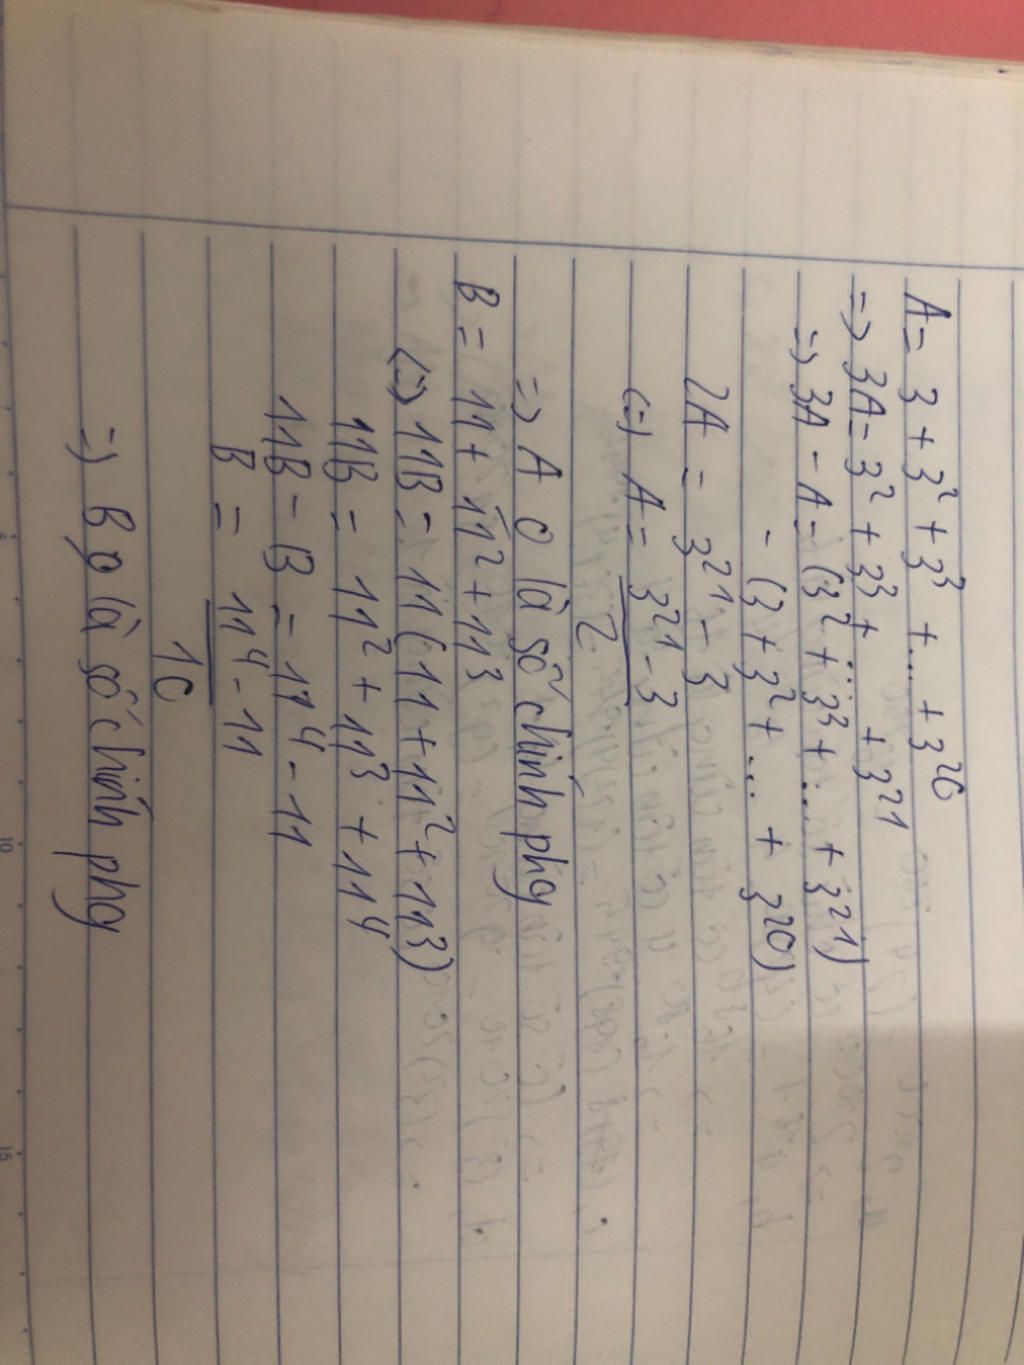 A = 3 + 3² + 3³ + ... + 3²⁰
=> 3A = 3² + 3³ + ... + 3²¹
=> 3A - A = (3² + 3³ + ... + 3²¹)
- (3 + 3² + ... + 3²⁰)
2A = 3²¹ - 3
(=) A = 3²¹ - 3
2
=> A 0 là số chính phg
B = 11 + 11² + 11³
<=> 11B = 11 (11 + 11² + 11³)
11B = 11² + 11³ + 11⁴
11B - B = 11⁴ - 11
B = 11⁴ - 11
10
=> B 0 là số chính phg